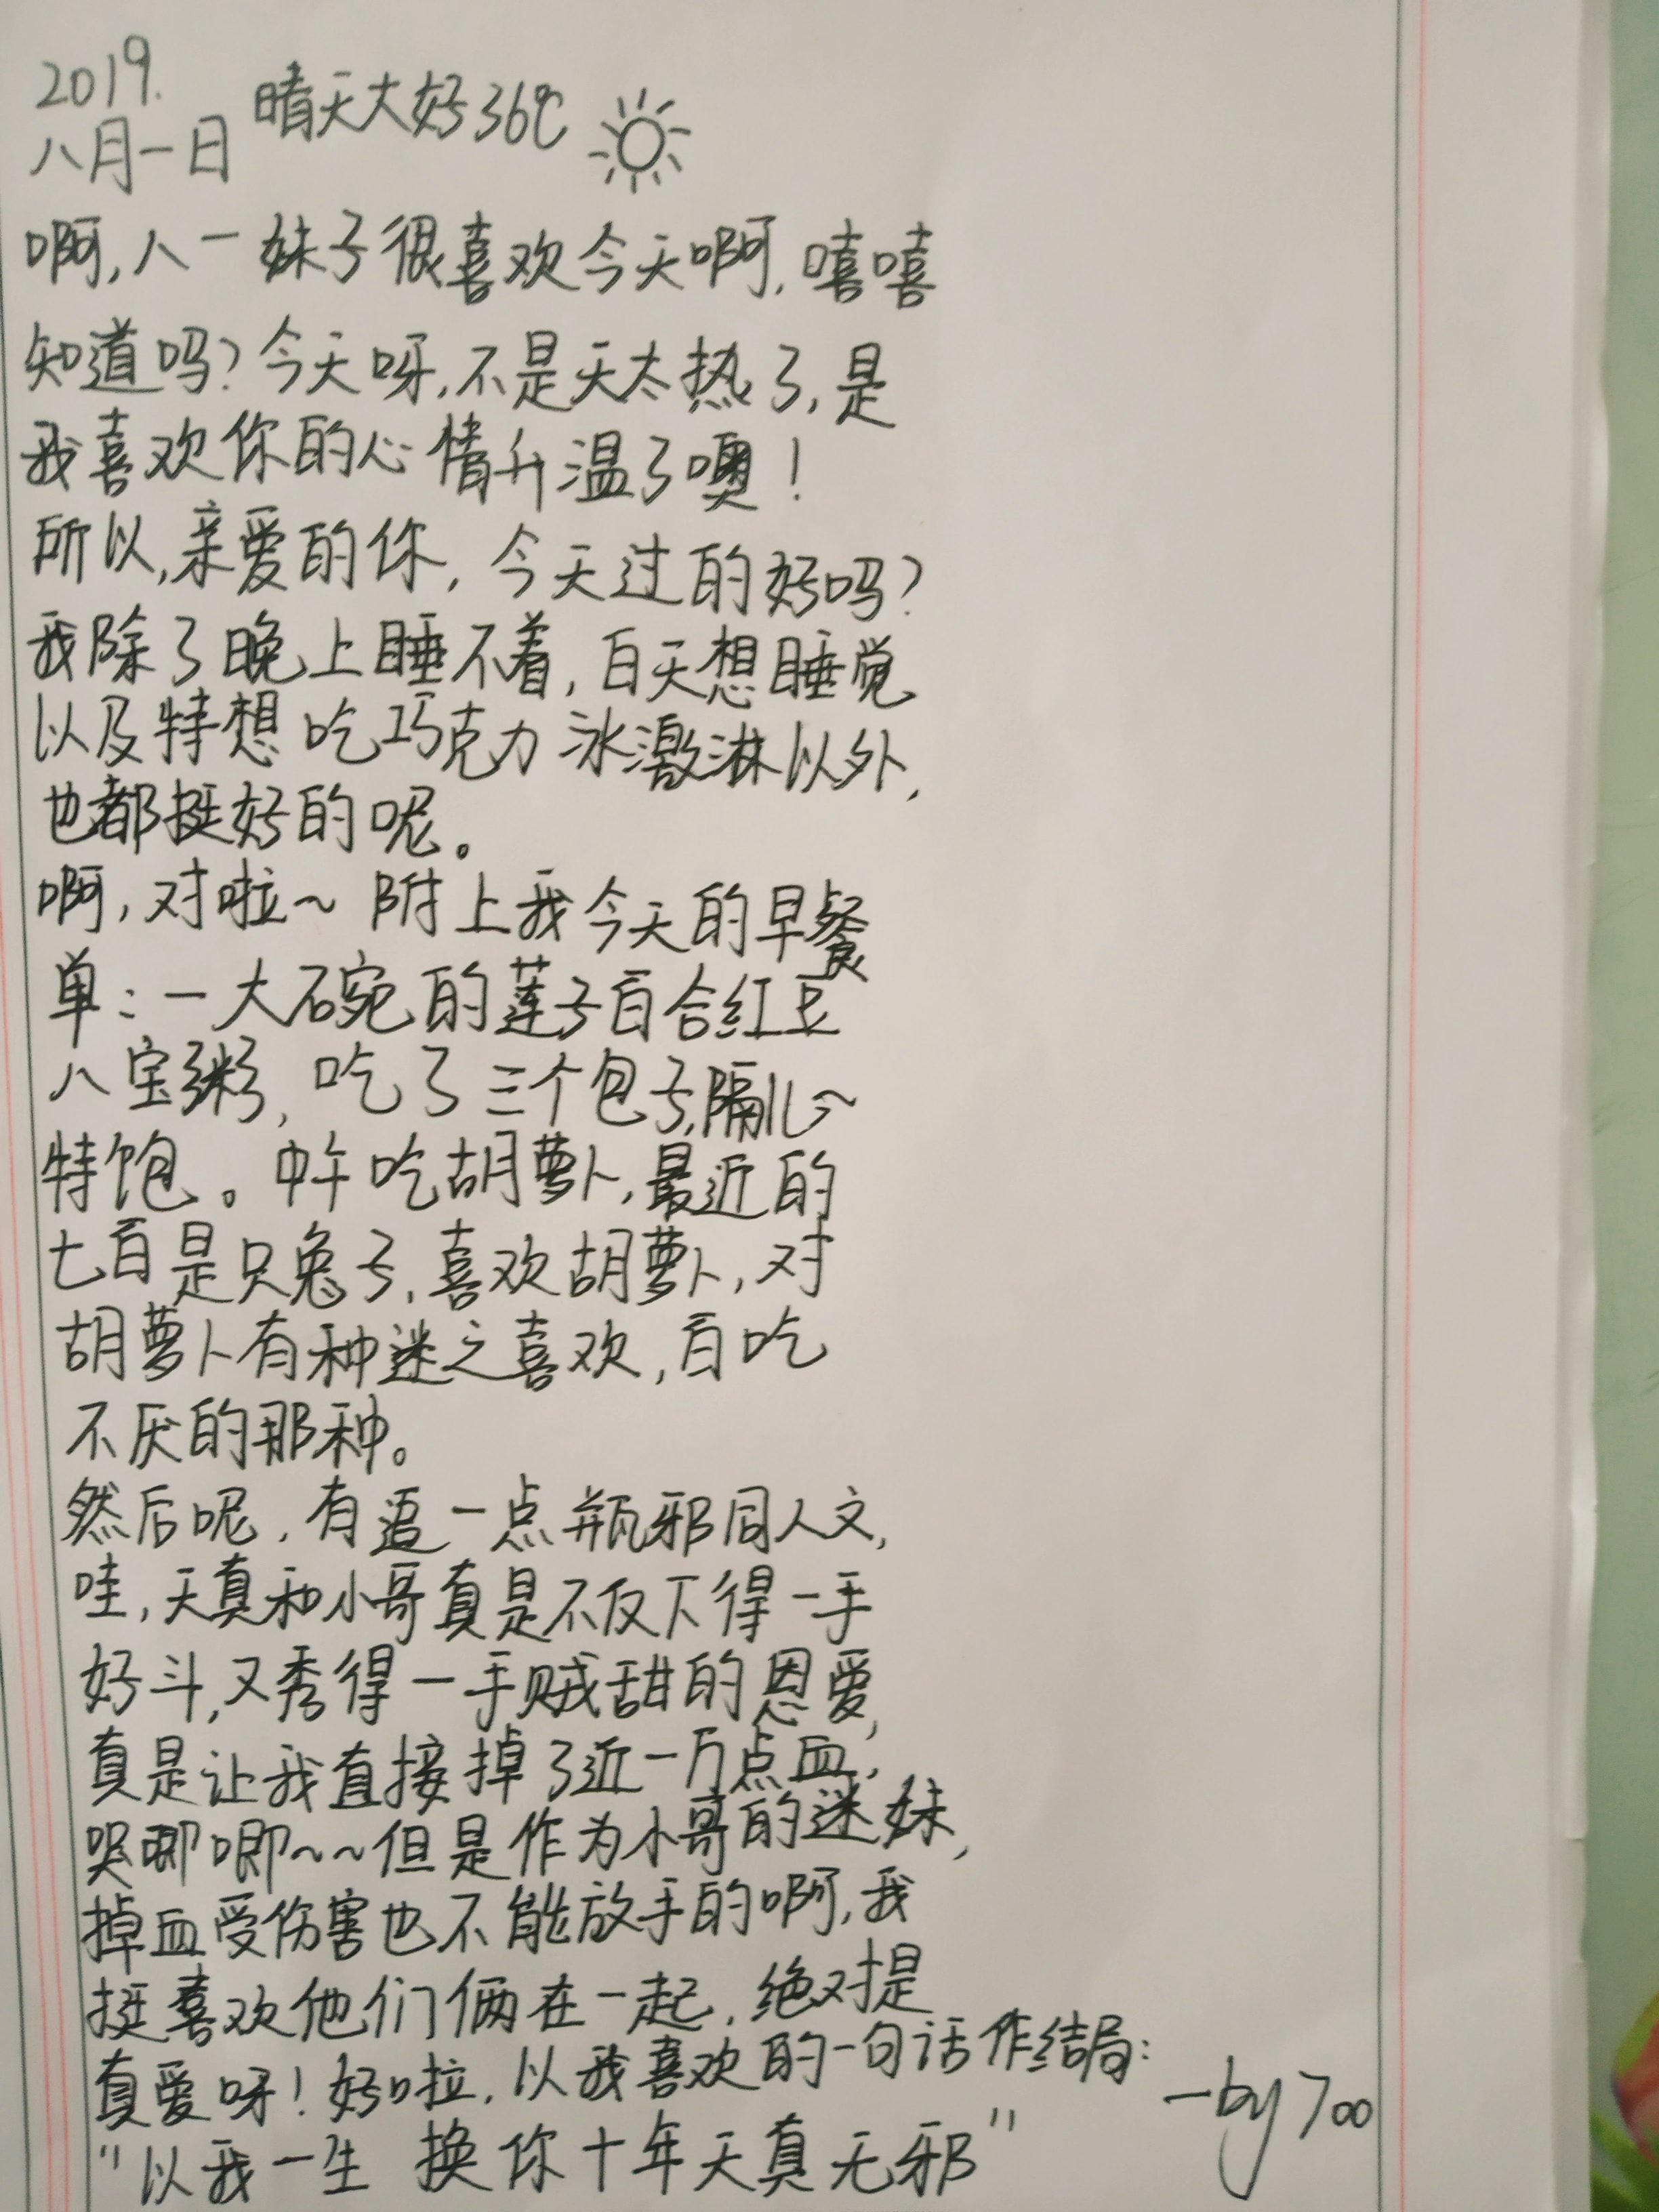 2019.
八月一日 晴天大好36℃
啊,八一妹子很喜欢今天啊,嘻嘻
知道吗?今天呀,不是天太热了,是
我喜欢你的心情升温了噢!
所以,亲爱的你,今天过的好吗?
我除了晚上睡不着,白天想睡觉
以及特想吃巧克力冰激淋以外,
也都挺好的呢。
啊,对啦~附上我今天的早餐
单:一大碗的莲子百合红豆
八宝粥,吃了三个包子,隔儿~
特饱。中午吃胡萝卜,最近的
七百是只兔子,喜欢胡萝卜,对
胡萝卜有种迷之喜欢,百吃
不厌的那种。
然后呢,有追一点瓶邪同人文,
哇,天真和小哥真是不仅下得一手
好斗,又秀得一手贼甜的恩爱,
真是让我直接掉了近一万点血,
哭唧唧~~但是作为小哥的迷妹,
掉血受伤害也不能放手的啊,我
挺喜欢他们俩在一起,绝对是
真爱呀!好啦,以我喜欢的一句话作结局:
"以我一生 换你十年天真无邪"
—by 700